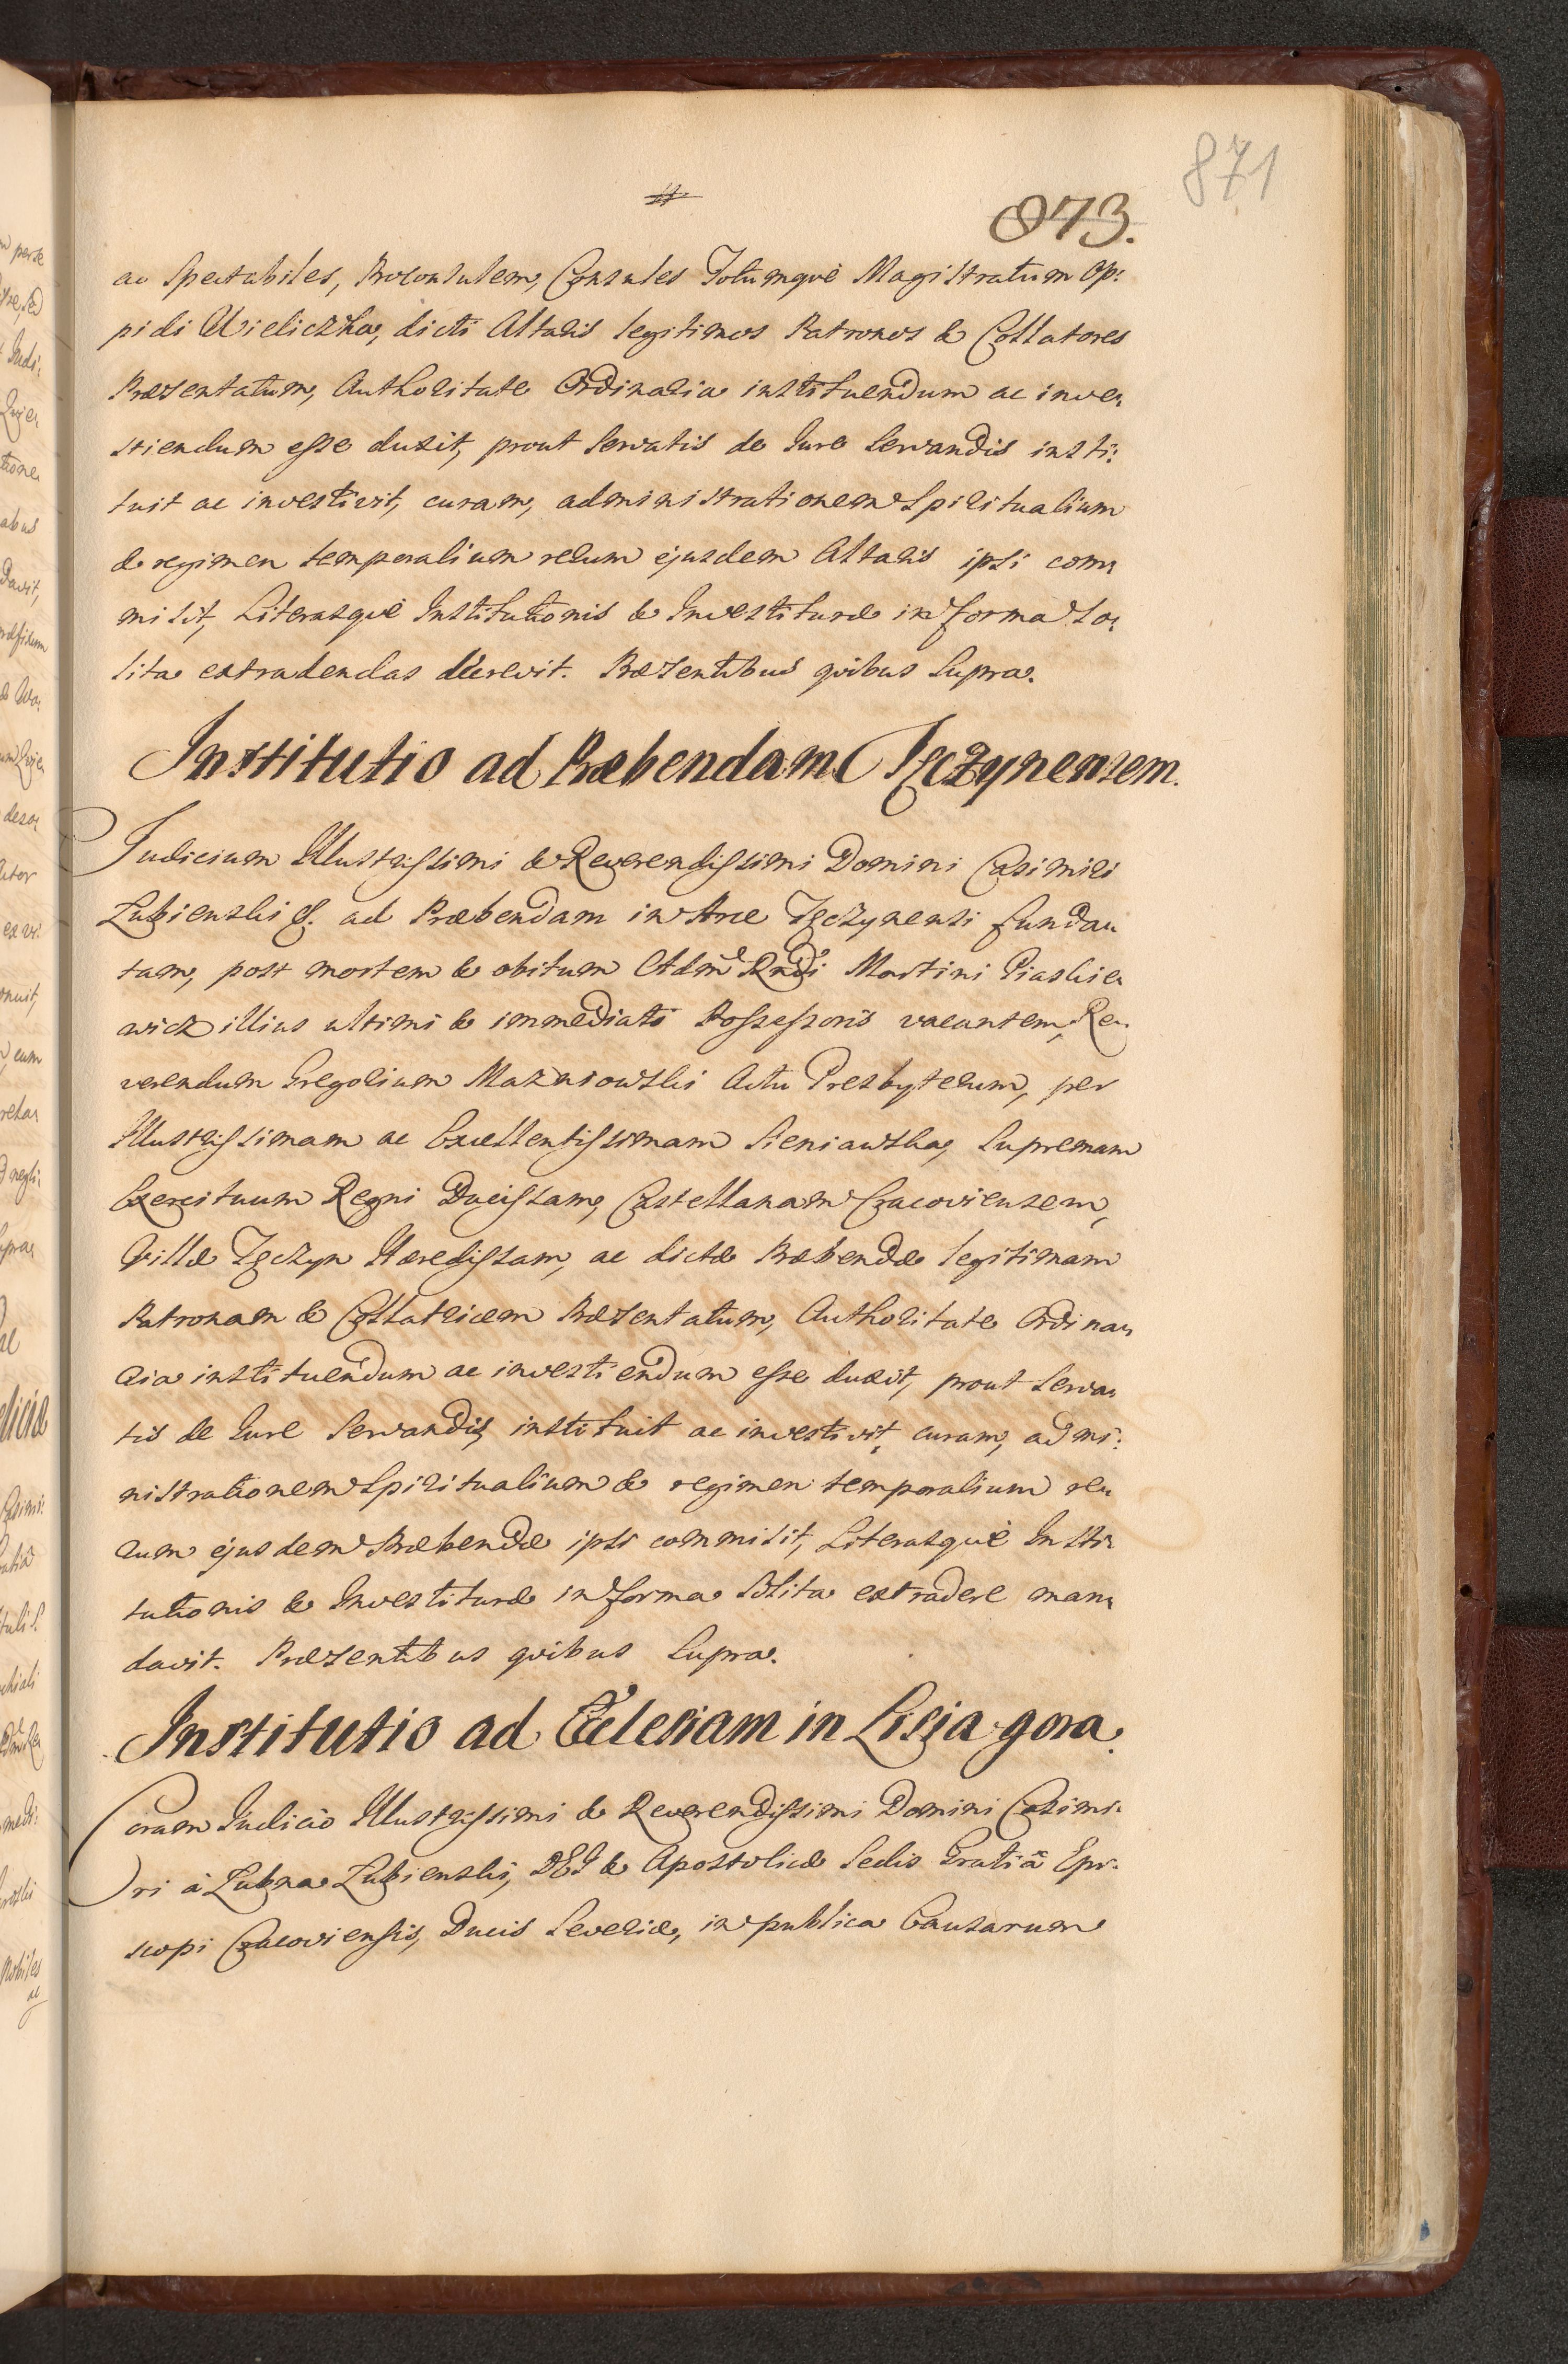 871
873.
ac Spectabiles, Proconsulem, Consules Totumquè Magistratum Op:
pidi Wieliczka, dicti Altaris legitimos Patronos & Collatores
Præsentatum, Authoritate Ordinaria instituendum ac inve:
stiendum esse duxit, prout servatis de Jure servandis insti:
tuit ac investivit, curam, administrationem Spiritualium
& regimen temporalium rerum ejusdem Altaris ipsi com:
misit, Literasquè Institutionis & Investituræ in forma so:
lita extradendas decrevit. Præsentibus quibus supra.
Institutio ad Præbendam Tęczynensem.
Judicium Illustrissimi & Reverendissimi Domini Casimiri
Łubienski &. ad Præbendam in Arce Tęczynensi funda:
tam, post mortem & obitum Adm Rndi Martini Piaskie:
wicz illius ultimi & immediati Possessoris vacantem, Re:
verendum Gregorium Mazniowski Actu Presbyterum, per
Illustrissimam ac Excellentissimam Sieniawska, Supremam
Exercituum Regni Ducissam, Castellanam Cracoviensem,
Villæ Tęczyn Hæredissam, ac dictæ Præbendæ legitimam
Patronam & Collatricem Præsentatum, Authoritate Ordina:
ria instituendum ac investiendum esse duxit, prout serva:
tis de Jure servandis, instituit ac investivit, curam, admi:
nistrationem Spiritualium & regimen temporalium re:
rum ejusdem Præbendæ ipsi commisit, Literasquè Insti:
tutionis & Investituræ in forma solita extradere man:
davit. Præsentibus quibus supra.
Institutio ad Ecclesiam in Lisia gora.
Coram Judicio Illustrissimi & Reverendissimi Domini Casimi:
ri à Łubna Łubienski, DEI & Apostolicæ Sedis Gratiâ Epi:
scopi Cracoviensis, Ducis Severiæ, in publica Causarum